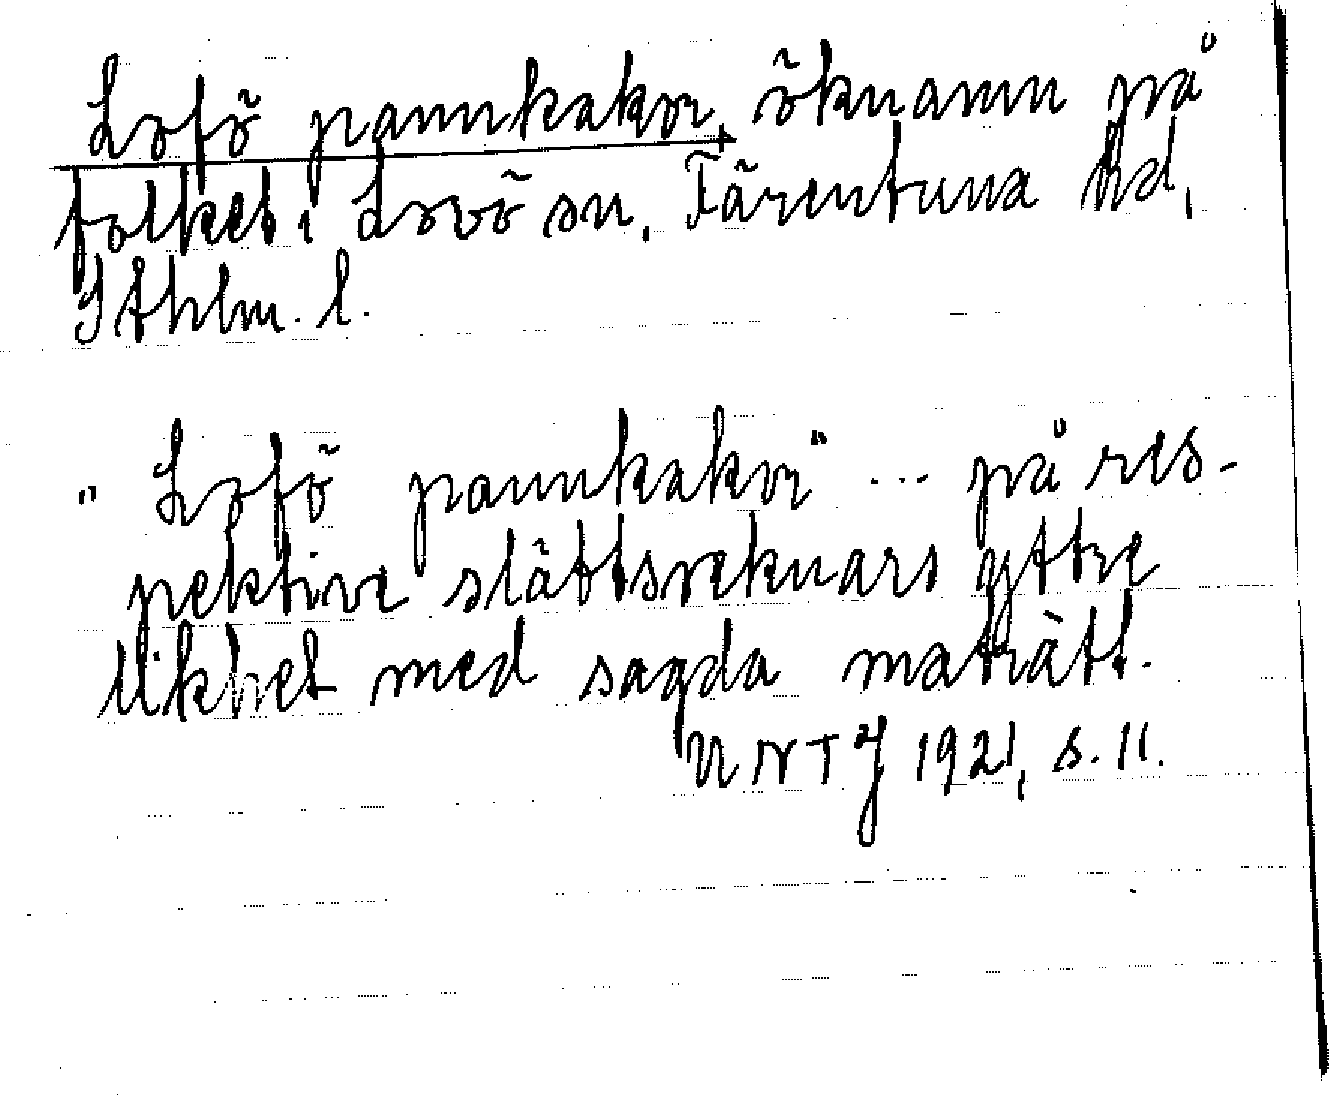 Lofö pannkakor, öknamn på
folket i Lovö sn, Färentuna hd,
Sthlm. l.
"Lofö pannkakor" ... på res-
pektive slättsreknars yttre
likhet med sagda maträtt.
UNTJ 1921, s. 11.